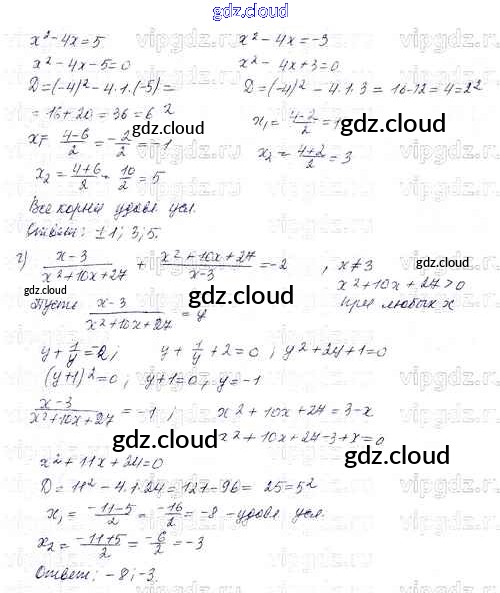 gdz.cloud
x² - 4x = 5
x² - 4x - 5 = 0
D = (-4)² - 4·1·(-5) =
= 16 + 20 = 36 = 6²
x₁ = (4-6)/2 = -2/2 = -1
x₂ = (4+6)/2 = 10/2 = 5
x² - 4x = -3
x² - 4x + 3 = 0
D = (-4)² - 4·1·3 = 16-12 = 4 = 2²
x₁ = (4-2)/2 = 1
x₂ = (4+2)/2 = 3
Все корни удовл. усл.
Ответ: ±1; 3; 5.
г) (x-3)/(x²+10x+27) + (x²+10x+27)/(x-3) = -2, x ≠ 3
x² + 10x + 27 > 0
при любых x
Пусть (x-3)/(x²+10x+27) = y
y + 1/y = -2; y + 1/y + 2 = 0; y² + 2y + 1 = 0
(y+1)² = 0; y+1 = 0; y = -1
(x-3)/(x²+10x+27) = -1; x² + 10x + 27 = 3 - x
x² + 10x + 27 - 3 + x = 0
x² + 11x + 24 = 0
D = 11² - 4·1·24 = 121 - 96 = 25 = 5²
x₁ = (-11-5)/2 = -16/2 = -8 - удовл. усл.
x₂ = (-11+5)/2 = -6/2 = -3
Ответ: -8; -3.